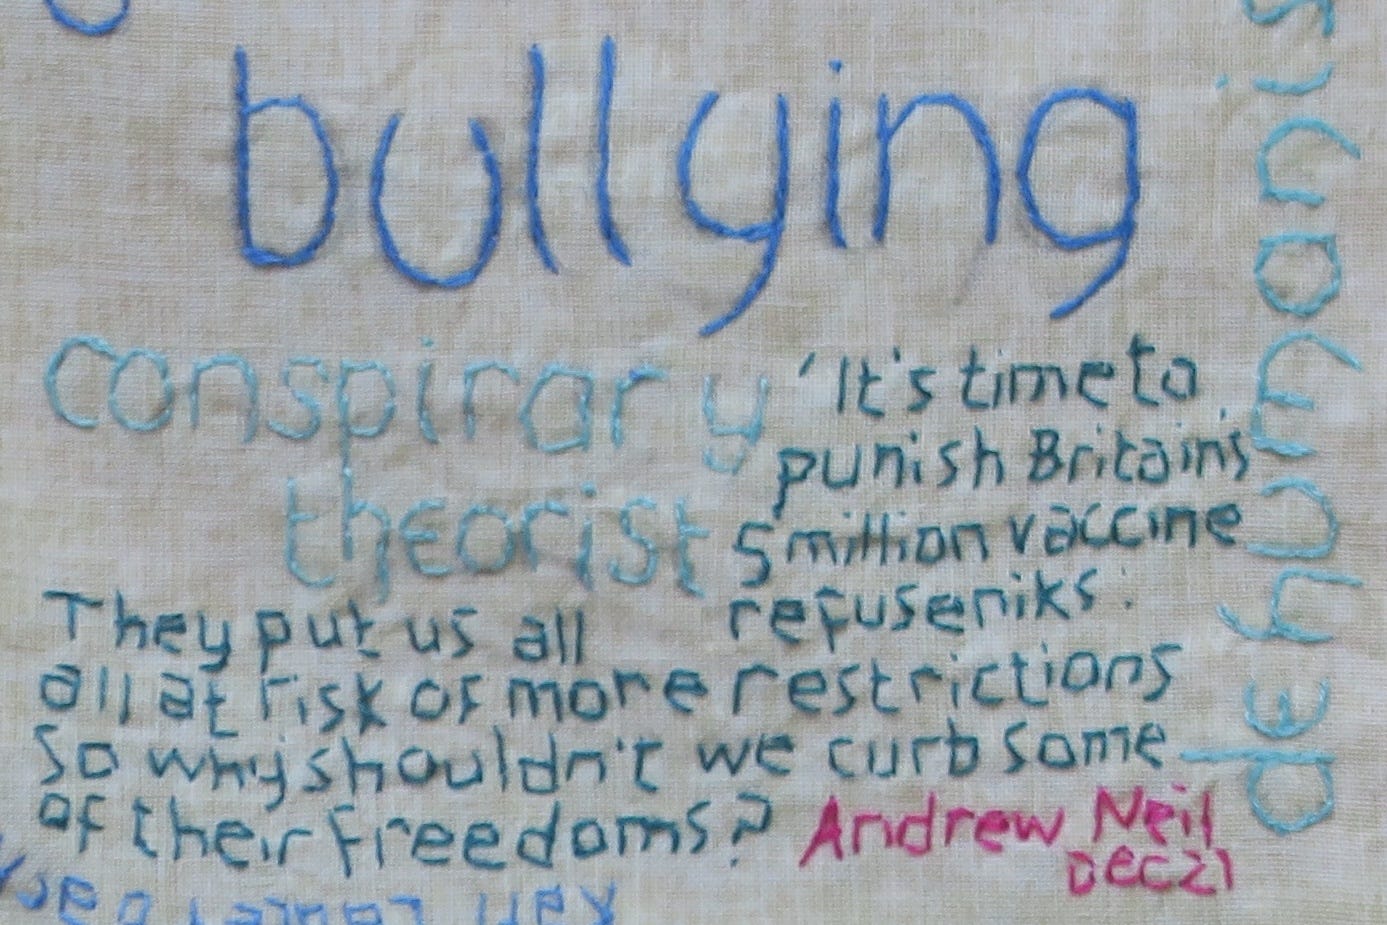 bullying
conspirary
theorist
'It's time to
punish Britain's
5 million vaccine
refuseniks:
They put us all
all at risk of more restrictions
So why shouldn't we curb some
of their freedoms?
Andrew Neil
Dec 21
dehumanis